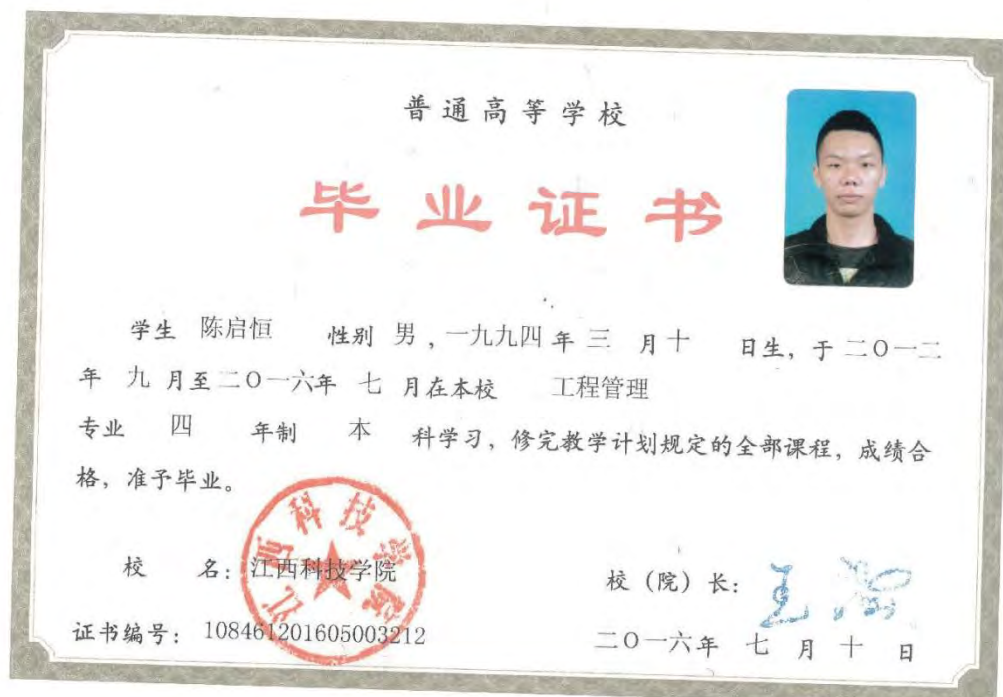 普通高等学校
毕业证书
学生 陈启恒 性别 男，一九九四年 三 月十 日生，于二〇一二
年 九 月至二〇一六年 七 月在本校 工程管理
专业 四 年制 本 科学习，修完教学计划规定的全部课程，成绩合
格，准予毕业。
江西科技学院
校 名：江西科技学院
校（院）长：
证书编号：108461201605003212
二〇一六年 七 月 十 日